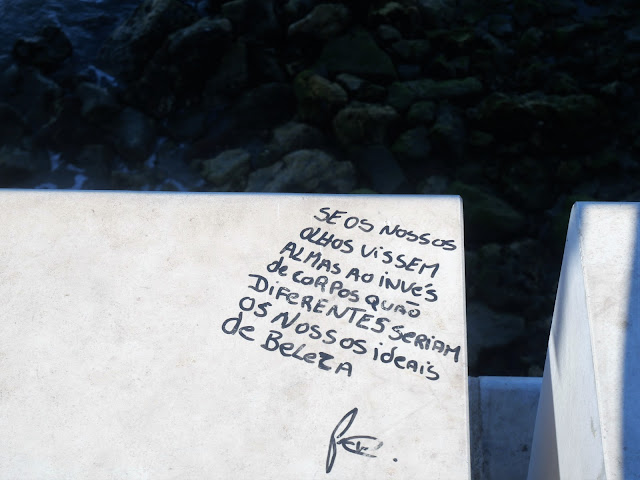 SE OS NOSSOS
OLHOS VISSEM
ALMAS AO INVÉS
de CORPOS QUÃO
DIFERENTES SERIAM
OS NOSSOS ideais
de BELEZA